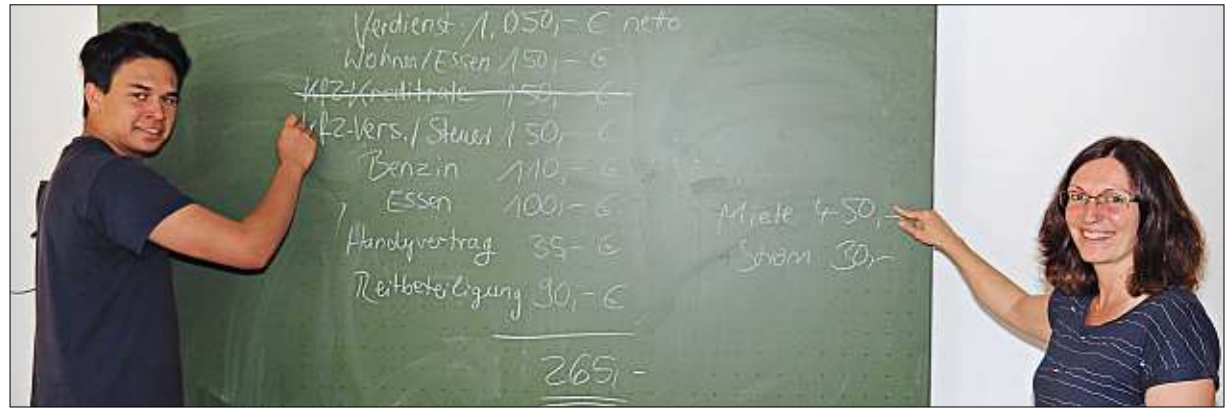 Verdienst 1.050,- € netto
Wohnen/Essen 150,- €
Kfz-Kreditrate 150,- €
Kfz-Vers./Steuer 150,- €
Benzin 110,- €
Essen 100,- €
Handyvertrag 35,- €
Reitbeteiligung 90,- €
265,-
Miete 450,-
Strom 30,-